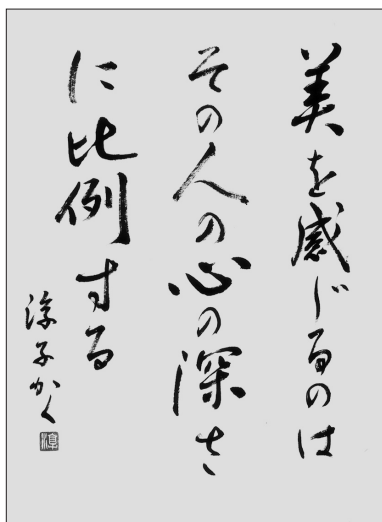 美を感じるのは
その人の心の深さ
に比例する
淳子かく
淳